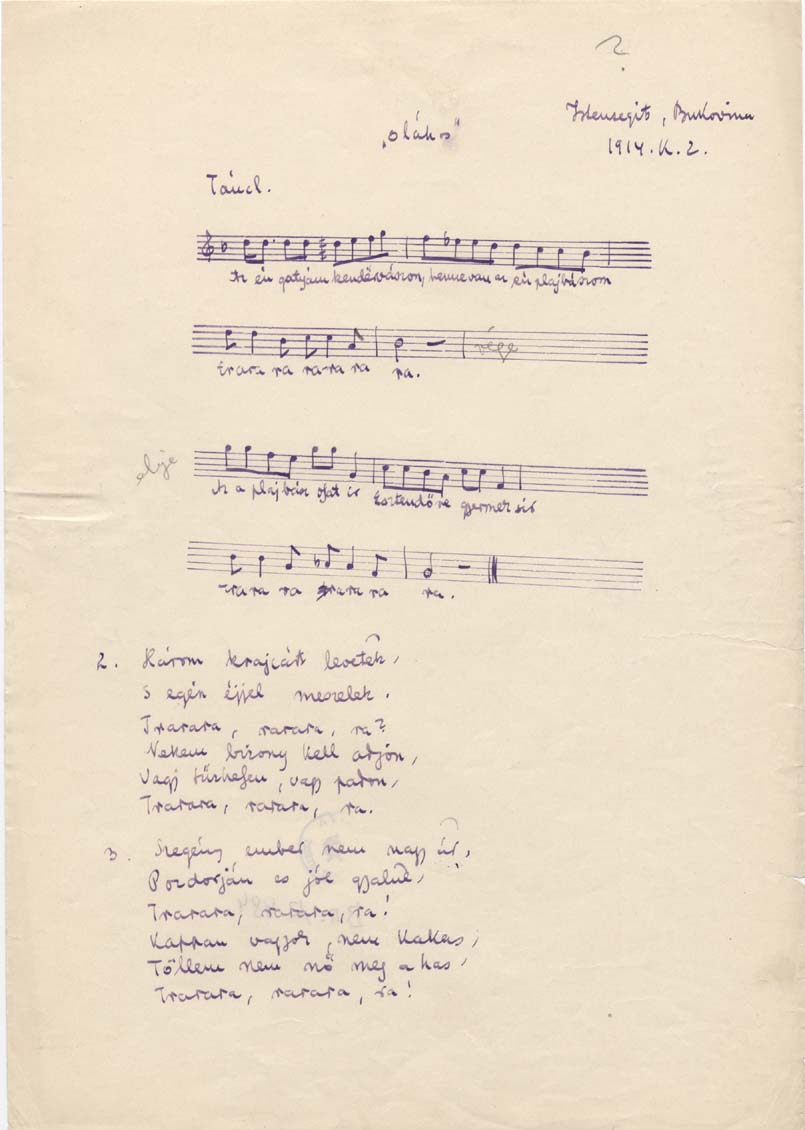 ?
Istensegits, Bukovina
1914. K. 2.
„oláhos"
Táncl.
Az én gatyám kendërvászon, benne van az én plajbászom
trara ra ra-ra ra ra.
vége
eleje
Az a plajbász ojat ir Esztendőre gyermek sir
trara ra trara ra ra.
2. Három krajcárt levetek,
S egén éjjel meszelek.
Trarara, rarara, ra?
Nekem bizony kell adjon,
Vagy tűzhefen, vagy padon,
Trarara, rarara, ra.
3. Szegény ember nem nagy úr,
Pozdorján es jól
Trarara, rarara, ra!
Kappan vagyok, nem Kakas,
Tőllem nem nő meg a has,
Trarara, rarara, ra!